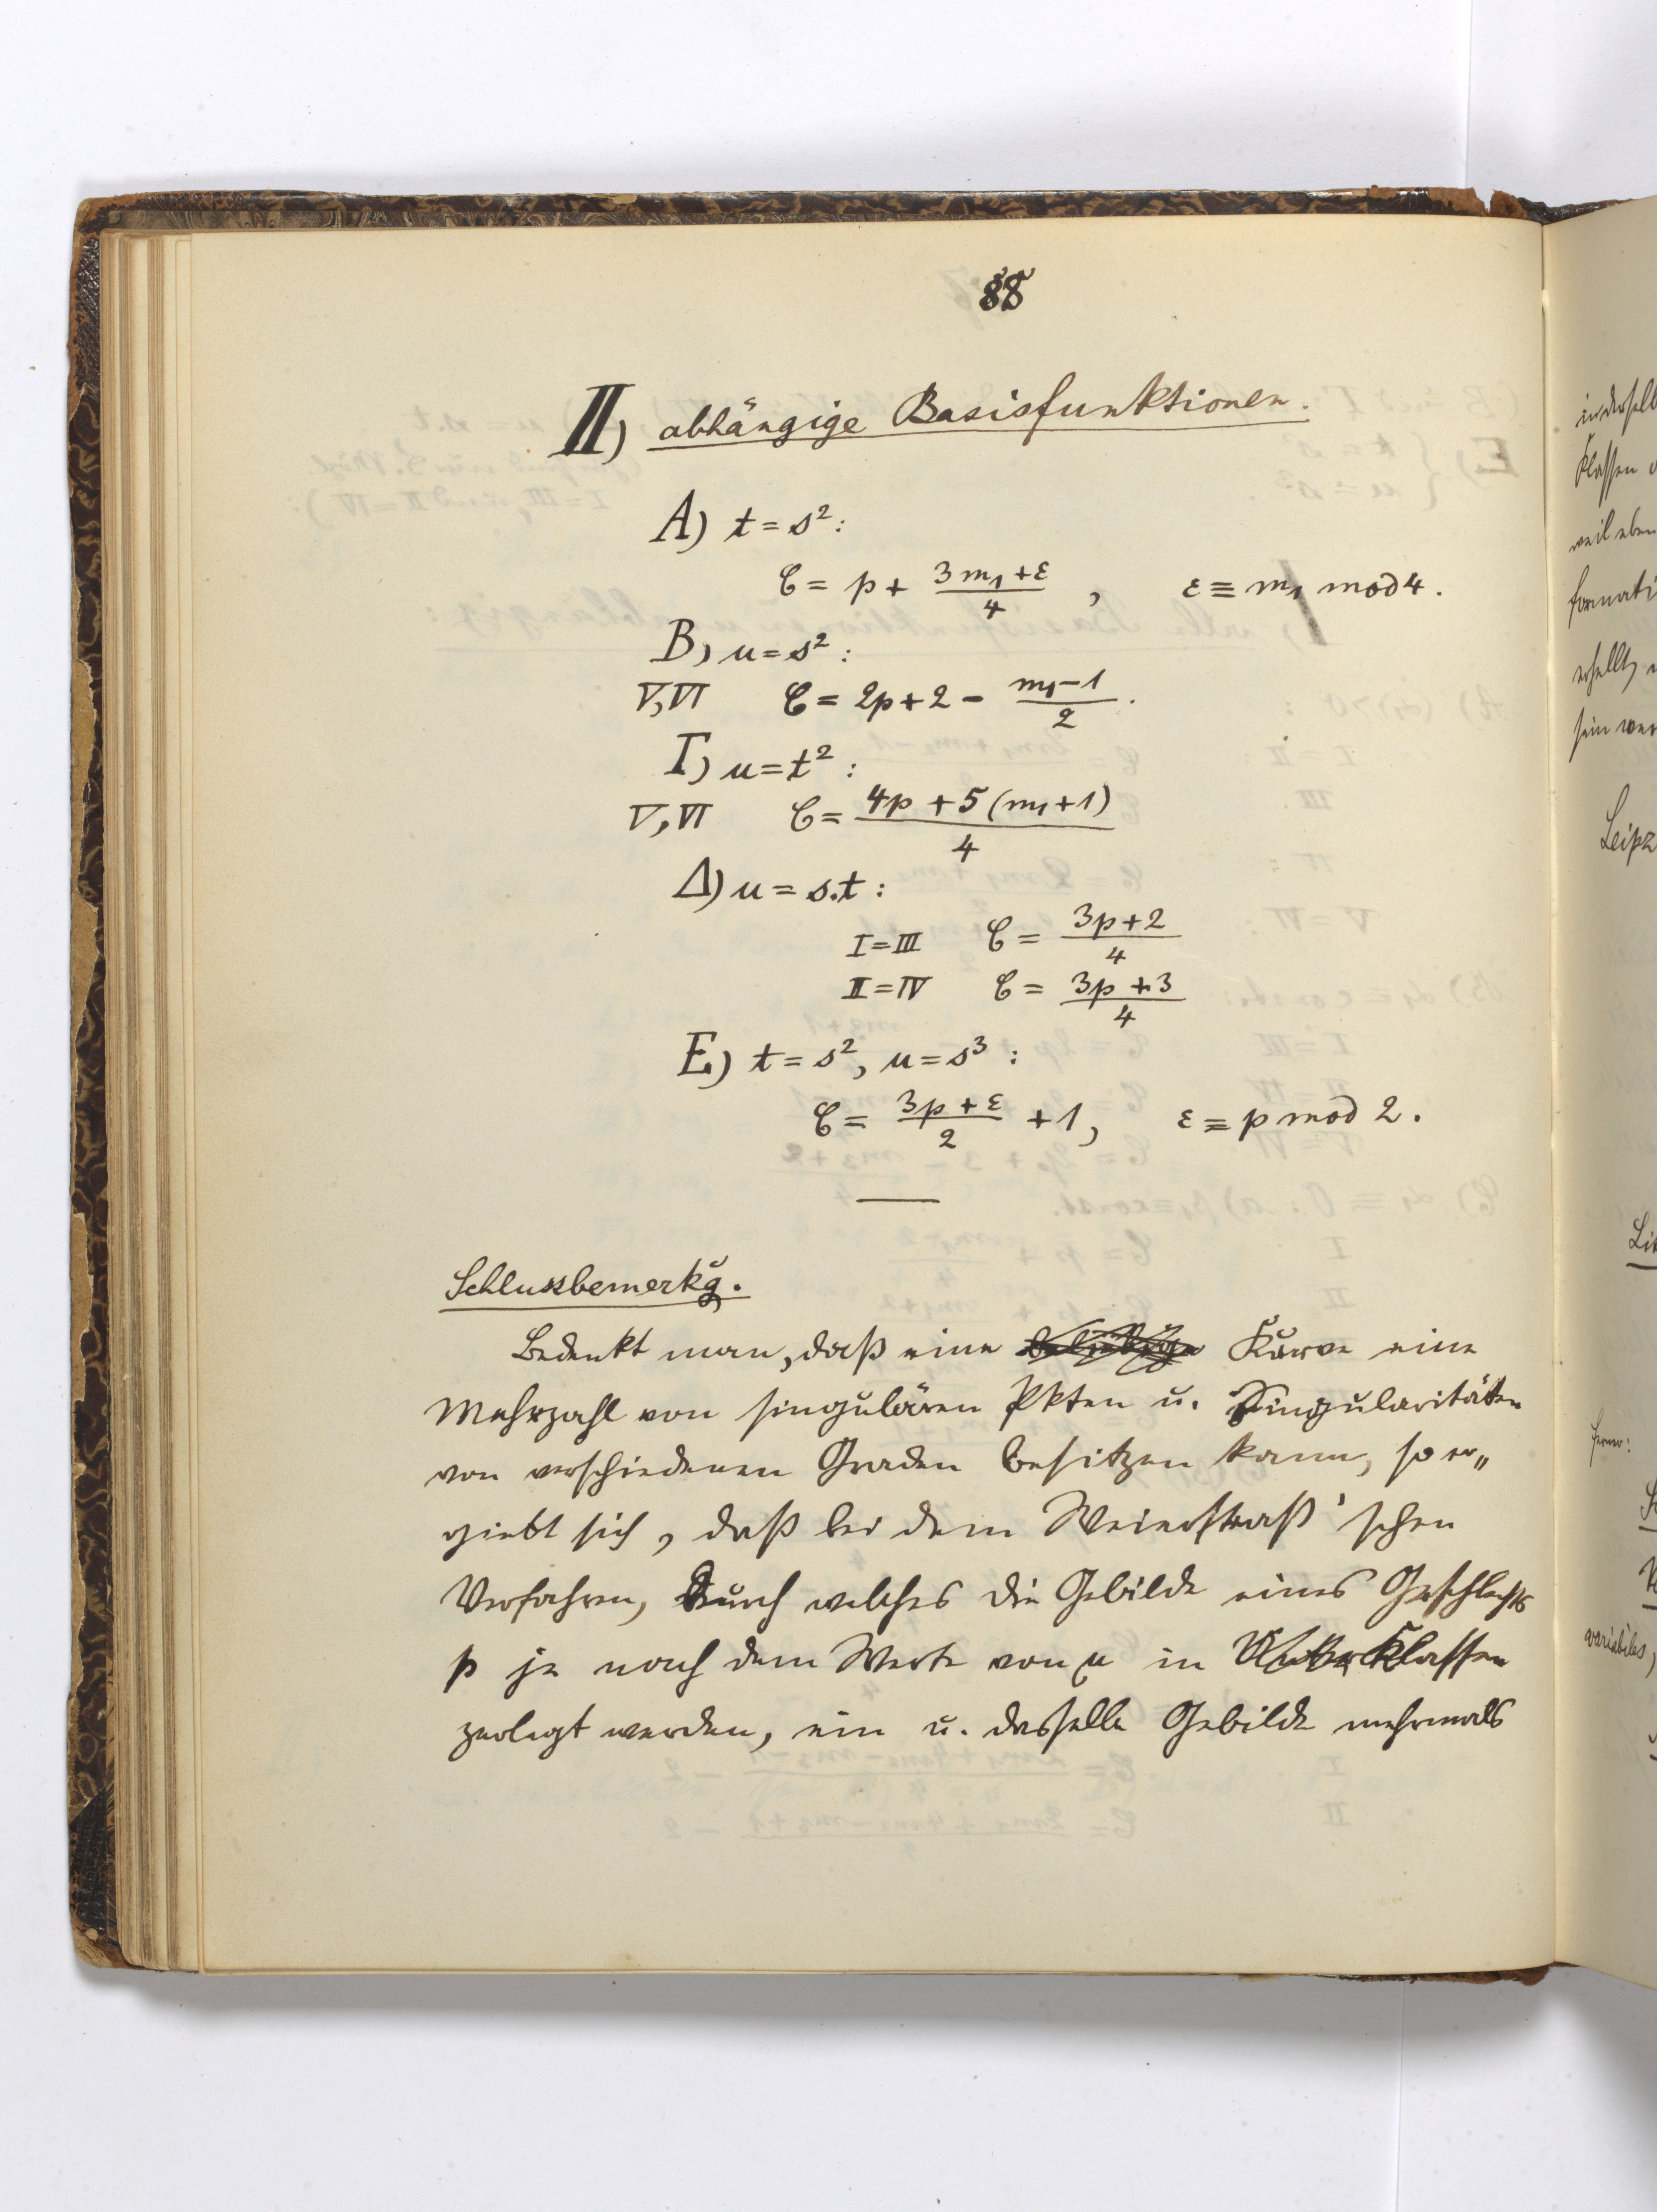 88
II) abhängige Basisfunktionen.
A) t = s²:
C = p + (3m₁+ε)/4 , ε ≡ m₁ mod 4.
B) u = s² :
V, VI C = 2p + 2 − (m₁−1)/2 .
Γ) u = t² :
V, VI C = (4p + 5(m₁+1))/4
Δ) u = s.t :
I = III C = (3p+2)/4
II = IV C = (3p+3)/4
E) t = s², u = s³ :
C = (3p+ε)/2 + 1, ε ≡ p mod 2.
Schlussbemerkg.
Bedenkt man, daß eine beliebige Kurve eine
Mehrzahl von singulären Pkten u. Singularitäten
von verschiedenen Graden besitzen kann, so er„
giebt sich, daß bei dem Weierstraß'schen
Verfahren, durch welches die Gebilde eines Geschlechts
p je nach dem Werte von μ in Klassen
zerlegt werden, ein u. dasselbe Gebilde mehrmals
in derselb
Klassen
weil eben
formati
erhellt,
sein wer
Leipz
ferner:
variabiles,